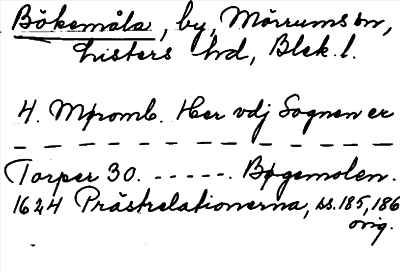 Bökemåla, by, Mörrums sn,
Listers hd, Blek. l.
4. Møromb. Her vdj Sognen er
— — — — — — — — — — — — —
Torper 30. - - - - - . Bøgemolen.
1624 Prästrelationerna, ss. 185, 186
orig.